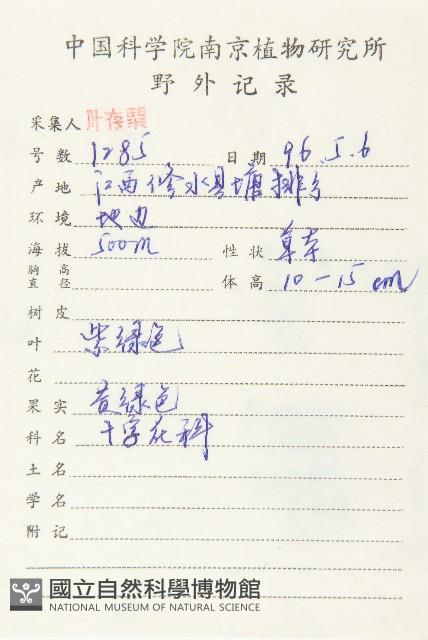 中国科学院南京植物研究所
野外记录
采集人 叶存粟
号数 1285 日期 96.5.6
产地 江西修水县塘排乡
环境 地边
海拔 500m 性状 草本
胸高直径 体高 10-15 cm
树皮
叶 紫绿色
花
果实 黄绿色
科名 十字花科
土名
学名
附记
國立自然科學博物館
NATIONAL MUSEUM OF NATURAL SCIENCE